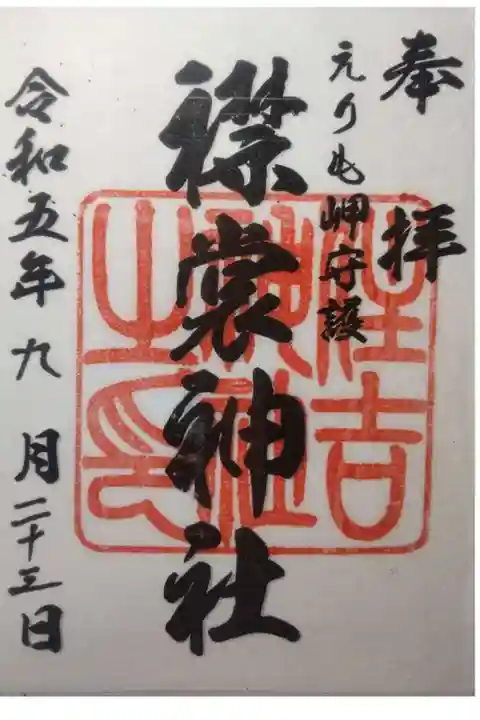 奉拝
えりも岬守護
襟裳神社
住吉神社之印
令和五年九月二十三日